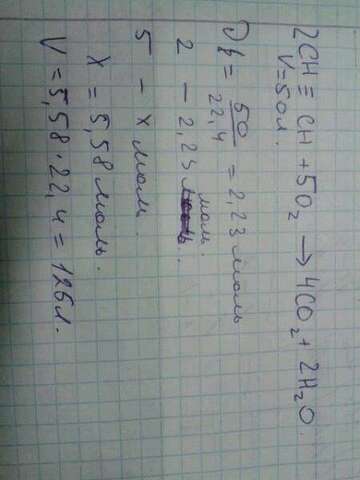 2CH≡CH + 5O₂ → 4CO₂ + 2H₂O.
V=50л.
= 50/22,4 = 2,23 моль
2 – 2,23 моль.
5 – x моль.
x = 5,58 моль.
V = 5,58·22,4 = 126л.